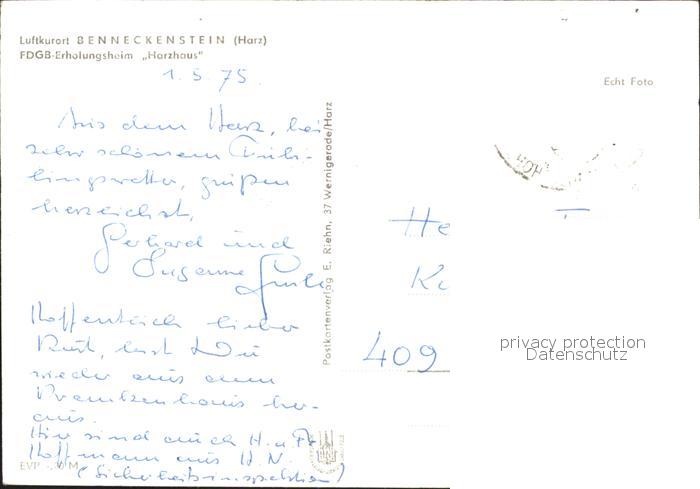 Luftkurort BENNECKENSTEIN (Harz)
FDGB-Erholungsheim „Harzhaus"
1. 5. 75.
Echt Foto
Aus dem Harz, bei
sehr schönem Früh-
lingswetter, grüßen
herzlichst,
Gerhard und
Susanne
Hoffentlich lieber
Kurt, bist Du
wieder aus dem
Krankenhaus her-
aus.
Hier sind auch H. u. Fr.
Hoffmann aus H.N.
(Sicherheitsinspektion)
EVP M
Postkartenverlag E. Riehn, 37 Wernigerode/Harz
He
Ku
409
privacy protection
Datenschutz